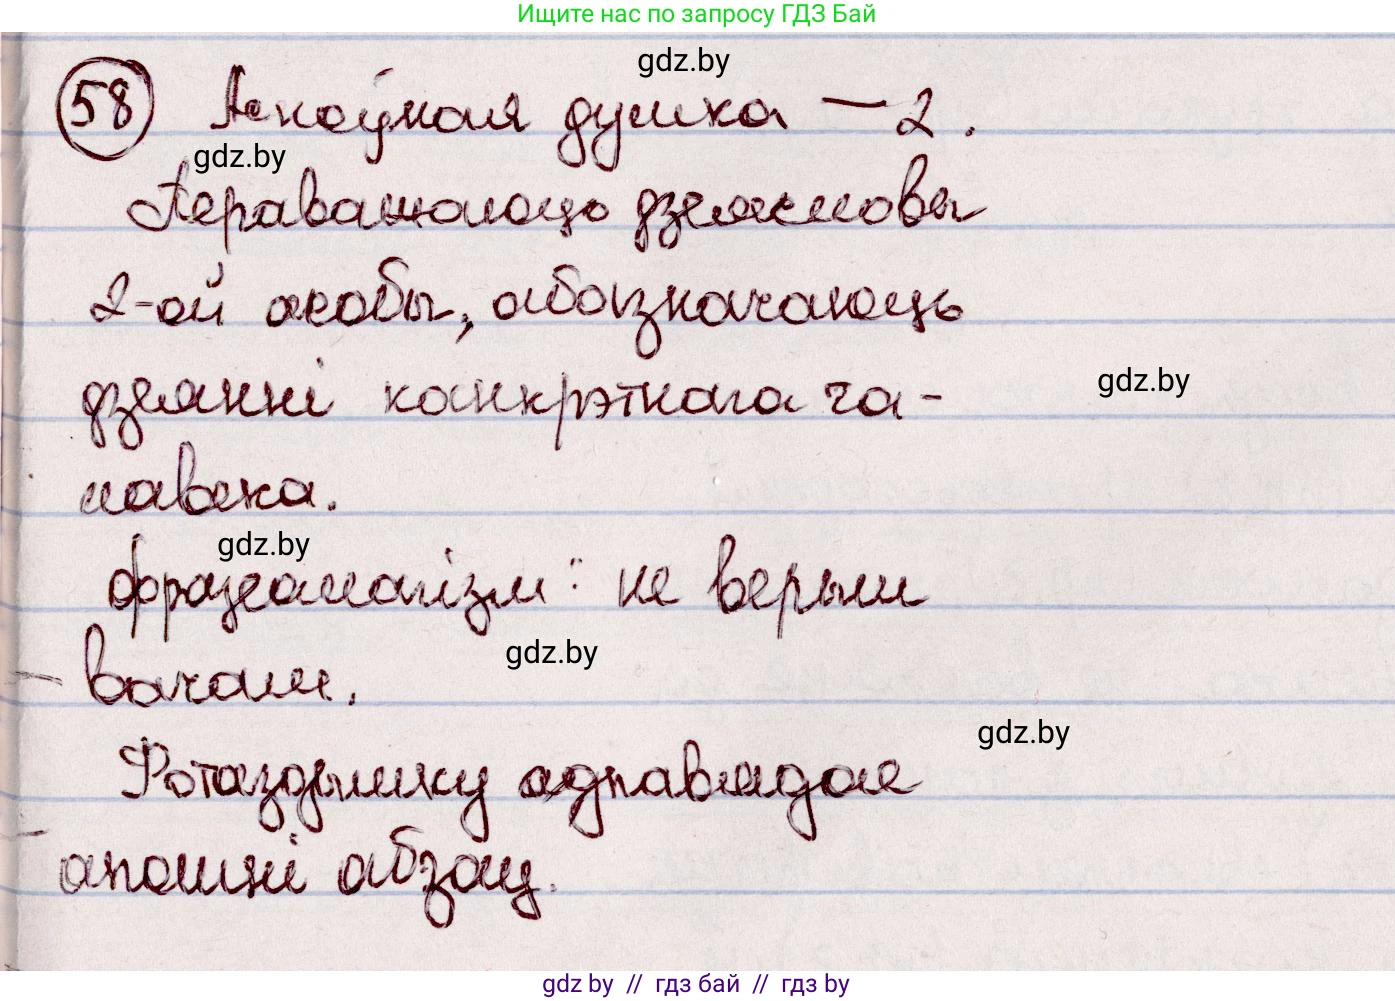 Ищите нас по запросу ГДЗ Бай
gdz.by
58 Асноўная думка – 2.
gdz.by
Пераважаюць дзеясловы
2-ой асобы, абазначаюць
дзеянні канкрэтнага ча-
gdz.by
лавека.
gdz.by
Фразеалагізм: не верыш
gdz.by
вачам.
gdz.by
Фотаздымку адпавядае
апошні абзац.
gdz by // гдз бай // gdz by